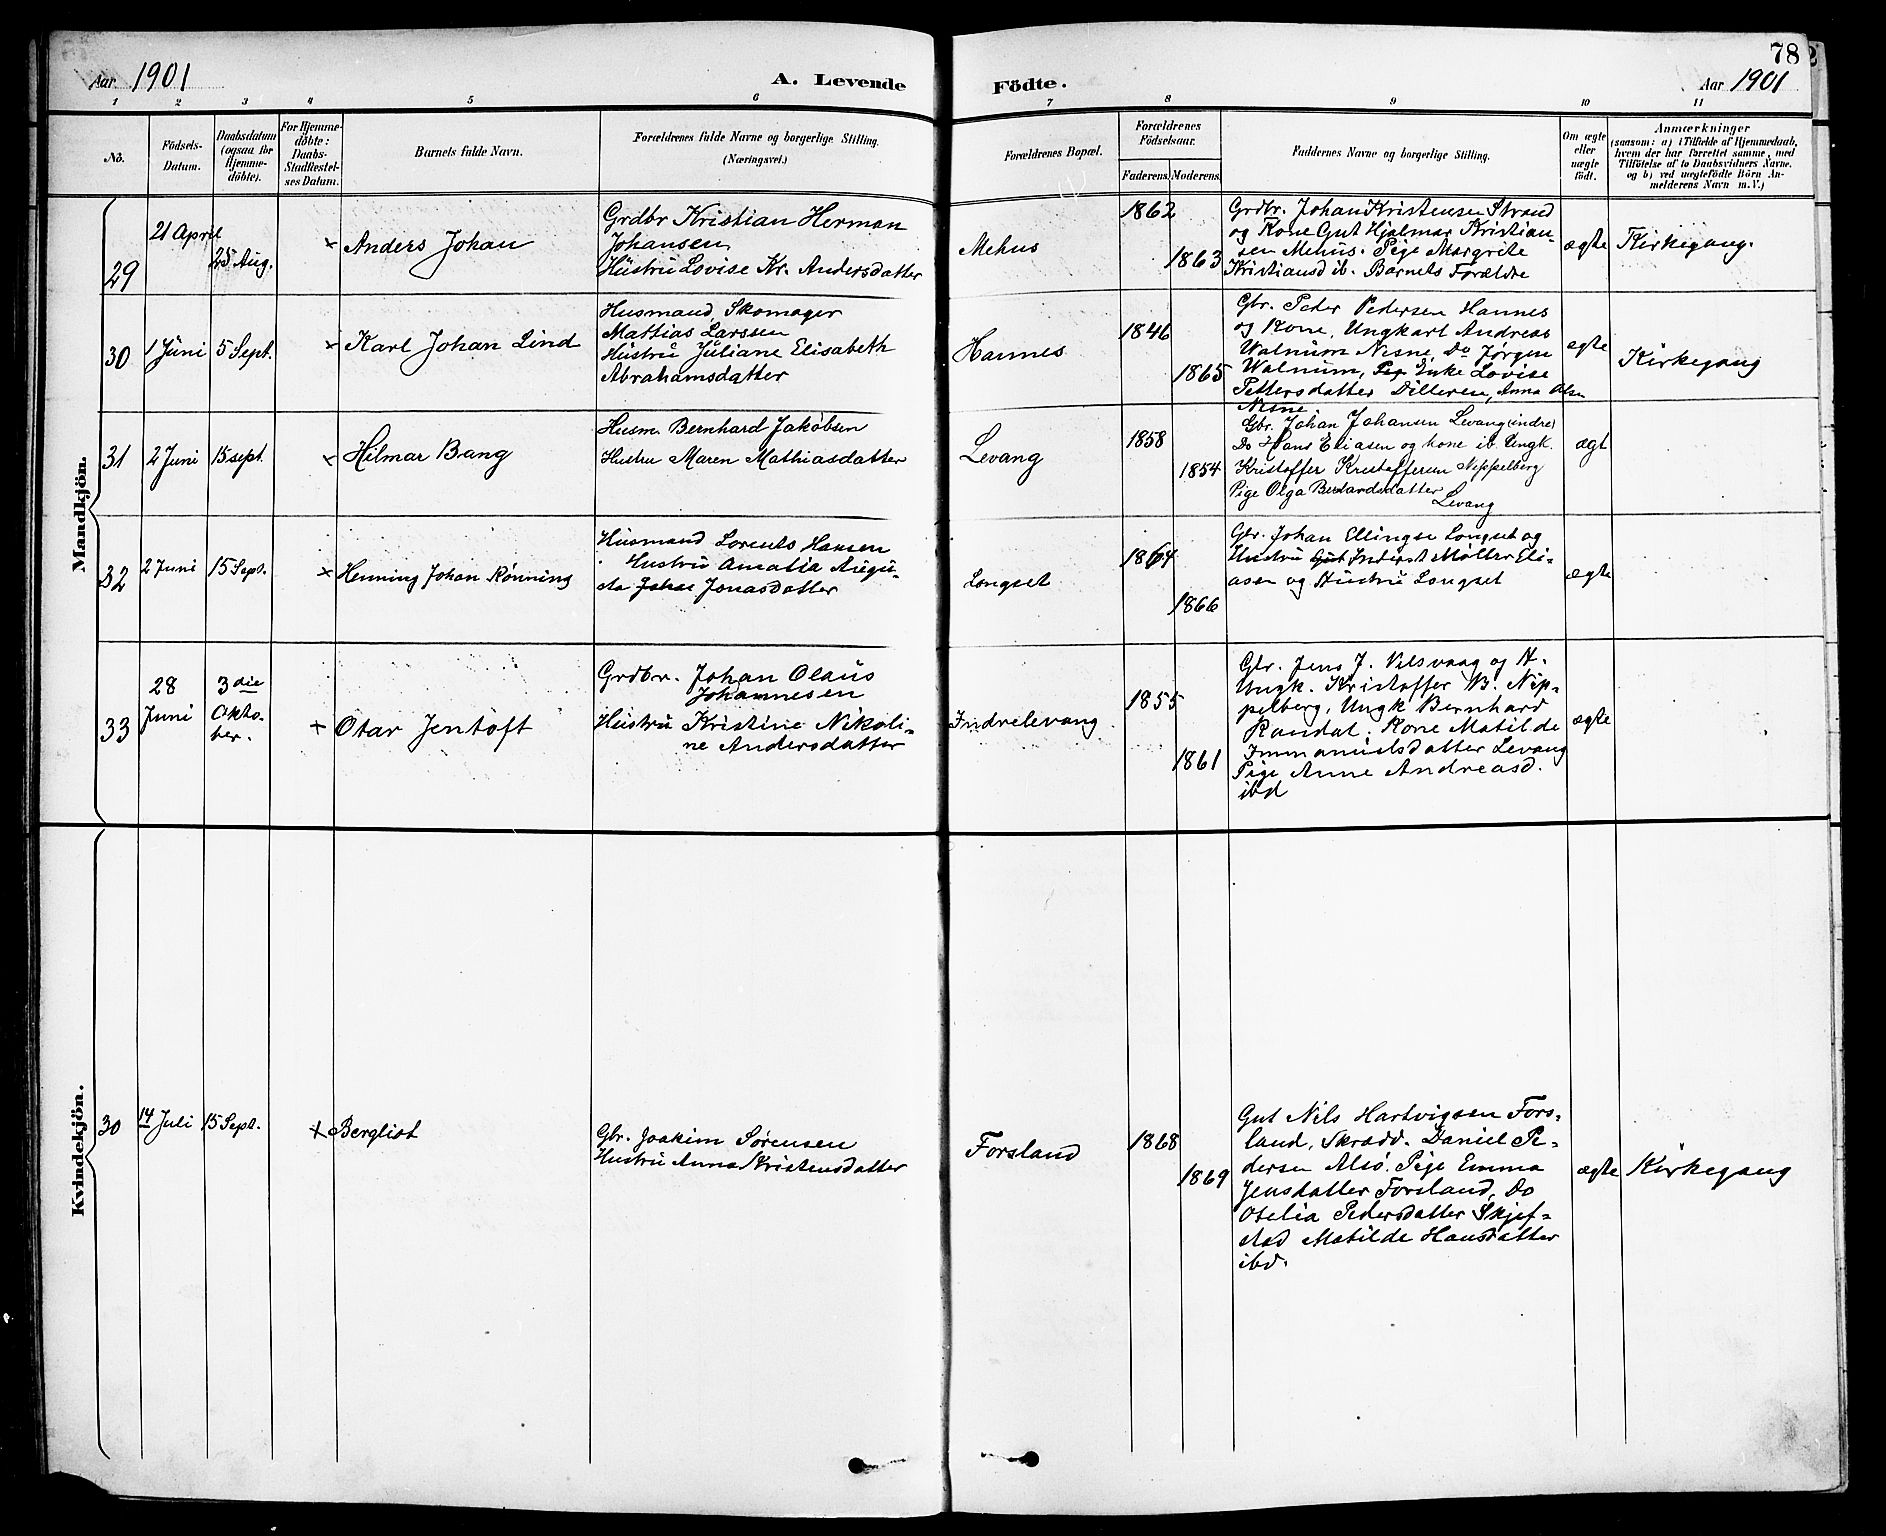 78
Aar 1901
A. Levende
Födte.
Aar 1901
1 2 3 4 5 6 7 8 9 10 11
No.
Födsels-
Datum.
Daabsdatum
(ogsaa for
Hjemme-
döbte).
For Hjemme-
döbte:
Daabs-
Stadfæstel-
ses Datum.
Barnets fulde Navn.
Forældrenes fulde Navne og borgerlige Stilling.
(Næringsvei.)
Forældrenes Bopæl.
Forældrenes
Födselsaar.
Faderens. Moderens.
Faddernes Navne og borgerlige Stilling.
Om ægte
eller
uægte
födt.
Anmærkninger
(saasom: a) i Tilfælde af Hjemmedaab,
hvem der har forrettet samme, med
Tilföielse af to Daabsvidners Navne.
og b) ved uægtefödte Börn An-
melderens Navn m. V.)
Mandkjön.
29
21 April
25 Aug.
×
Anders Johan
Grdbr Kristian Herman
Johansen
Hustru Lovise Kr. Andersdatter
Mehus
1862
1863
Grdbr. Johan Kristensen Strand
og Kone Gut Hjalmar Kristian-
sen Mehus. Pige Margrite
Kristiansd ib. Barnets Forældre
ægte
Kirkegang.
30
1 Juni
5 Sept.
×
Karl Johan Lind
Husmand, Skomager
Mattias Larssen
Hustru Juliane Elisabeth
Abrahamsdatter
Hannes
1846
1865
Gbr. Peder Pedersen Hannes
og Kone, Ungkarl Andreas
Walnum Nesne, Do Jørgen
Walnum, Enke Lovise
Pettersdatter Dilleren, Anna Olsen
Nesne.
ægte
Kirkegang
31
2 Juni
15 sept.
×
Hilmar Bang
Husm. Bernhard Jakobsen
Hustru Maren Mathiasdatter
Levang
1858
1854
Gbr. Johan Johansen Levang (indre)
Do Hans Eliasen og kone ib. Ungk.
Kristoffer Kristoffersen Nippelberg
Pige Olga Berntandsdatter
Levang
ægt
32
2 Juni
15 Sept.
×
Henning Johan Rønning
Husmand Lorents Hansen
Hustru Amalia Augu-
sta Jonasdatter
Longset
1864
1866
Gbr. Johan Ellingse Longset og
Hustru Inderst Møller Eli-
asen og Hustru Longset
ægte
33
28
Juni
3die
Okto-
ber.
×
Otar Jentoft
Grdbr. Johan Olaus
Johannesen
Hustru Kristine Nikoli-
ne Andersdatter
Indrelevang
1855
1861
Gbr. Jens J. Vilsvaag og H.
Ungk. Kristoffer B. Nip-
pelberg, Ungk Bernhard
Randal. Kone Matilde
Immanuelsdatter Levang
Pige Anne Andreasd.
ibd
ægte
Kvindekjön.
30
14 Juli
15 Sept.
×
Bergliot
Gbr. Joakim Sørensen
Hustru Anna Kristensdatter
Forsland
1868
1869
Gut Nils Hartvigsen Fors-
land, Skrædd. Daniel Pe-
dersen Alsö. Pige Emma
Jensdatter Forsland, Do
Otelia Pedersdatter Skjef-
stad Matilde Hansdatter
ibd.
ægte
Kirkegang